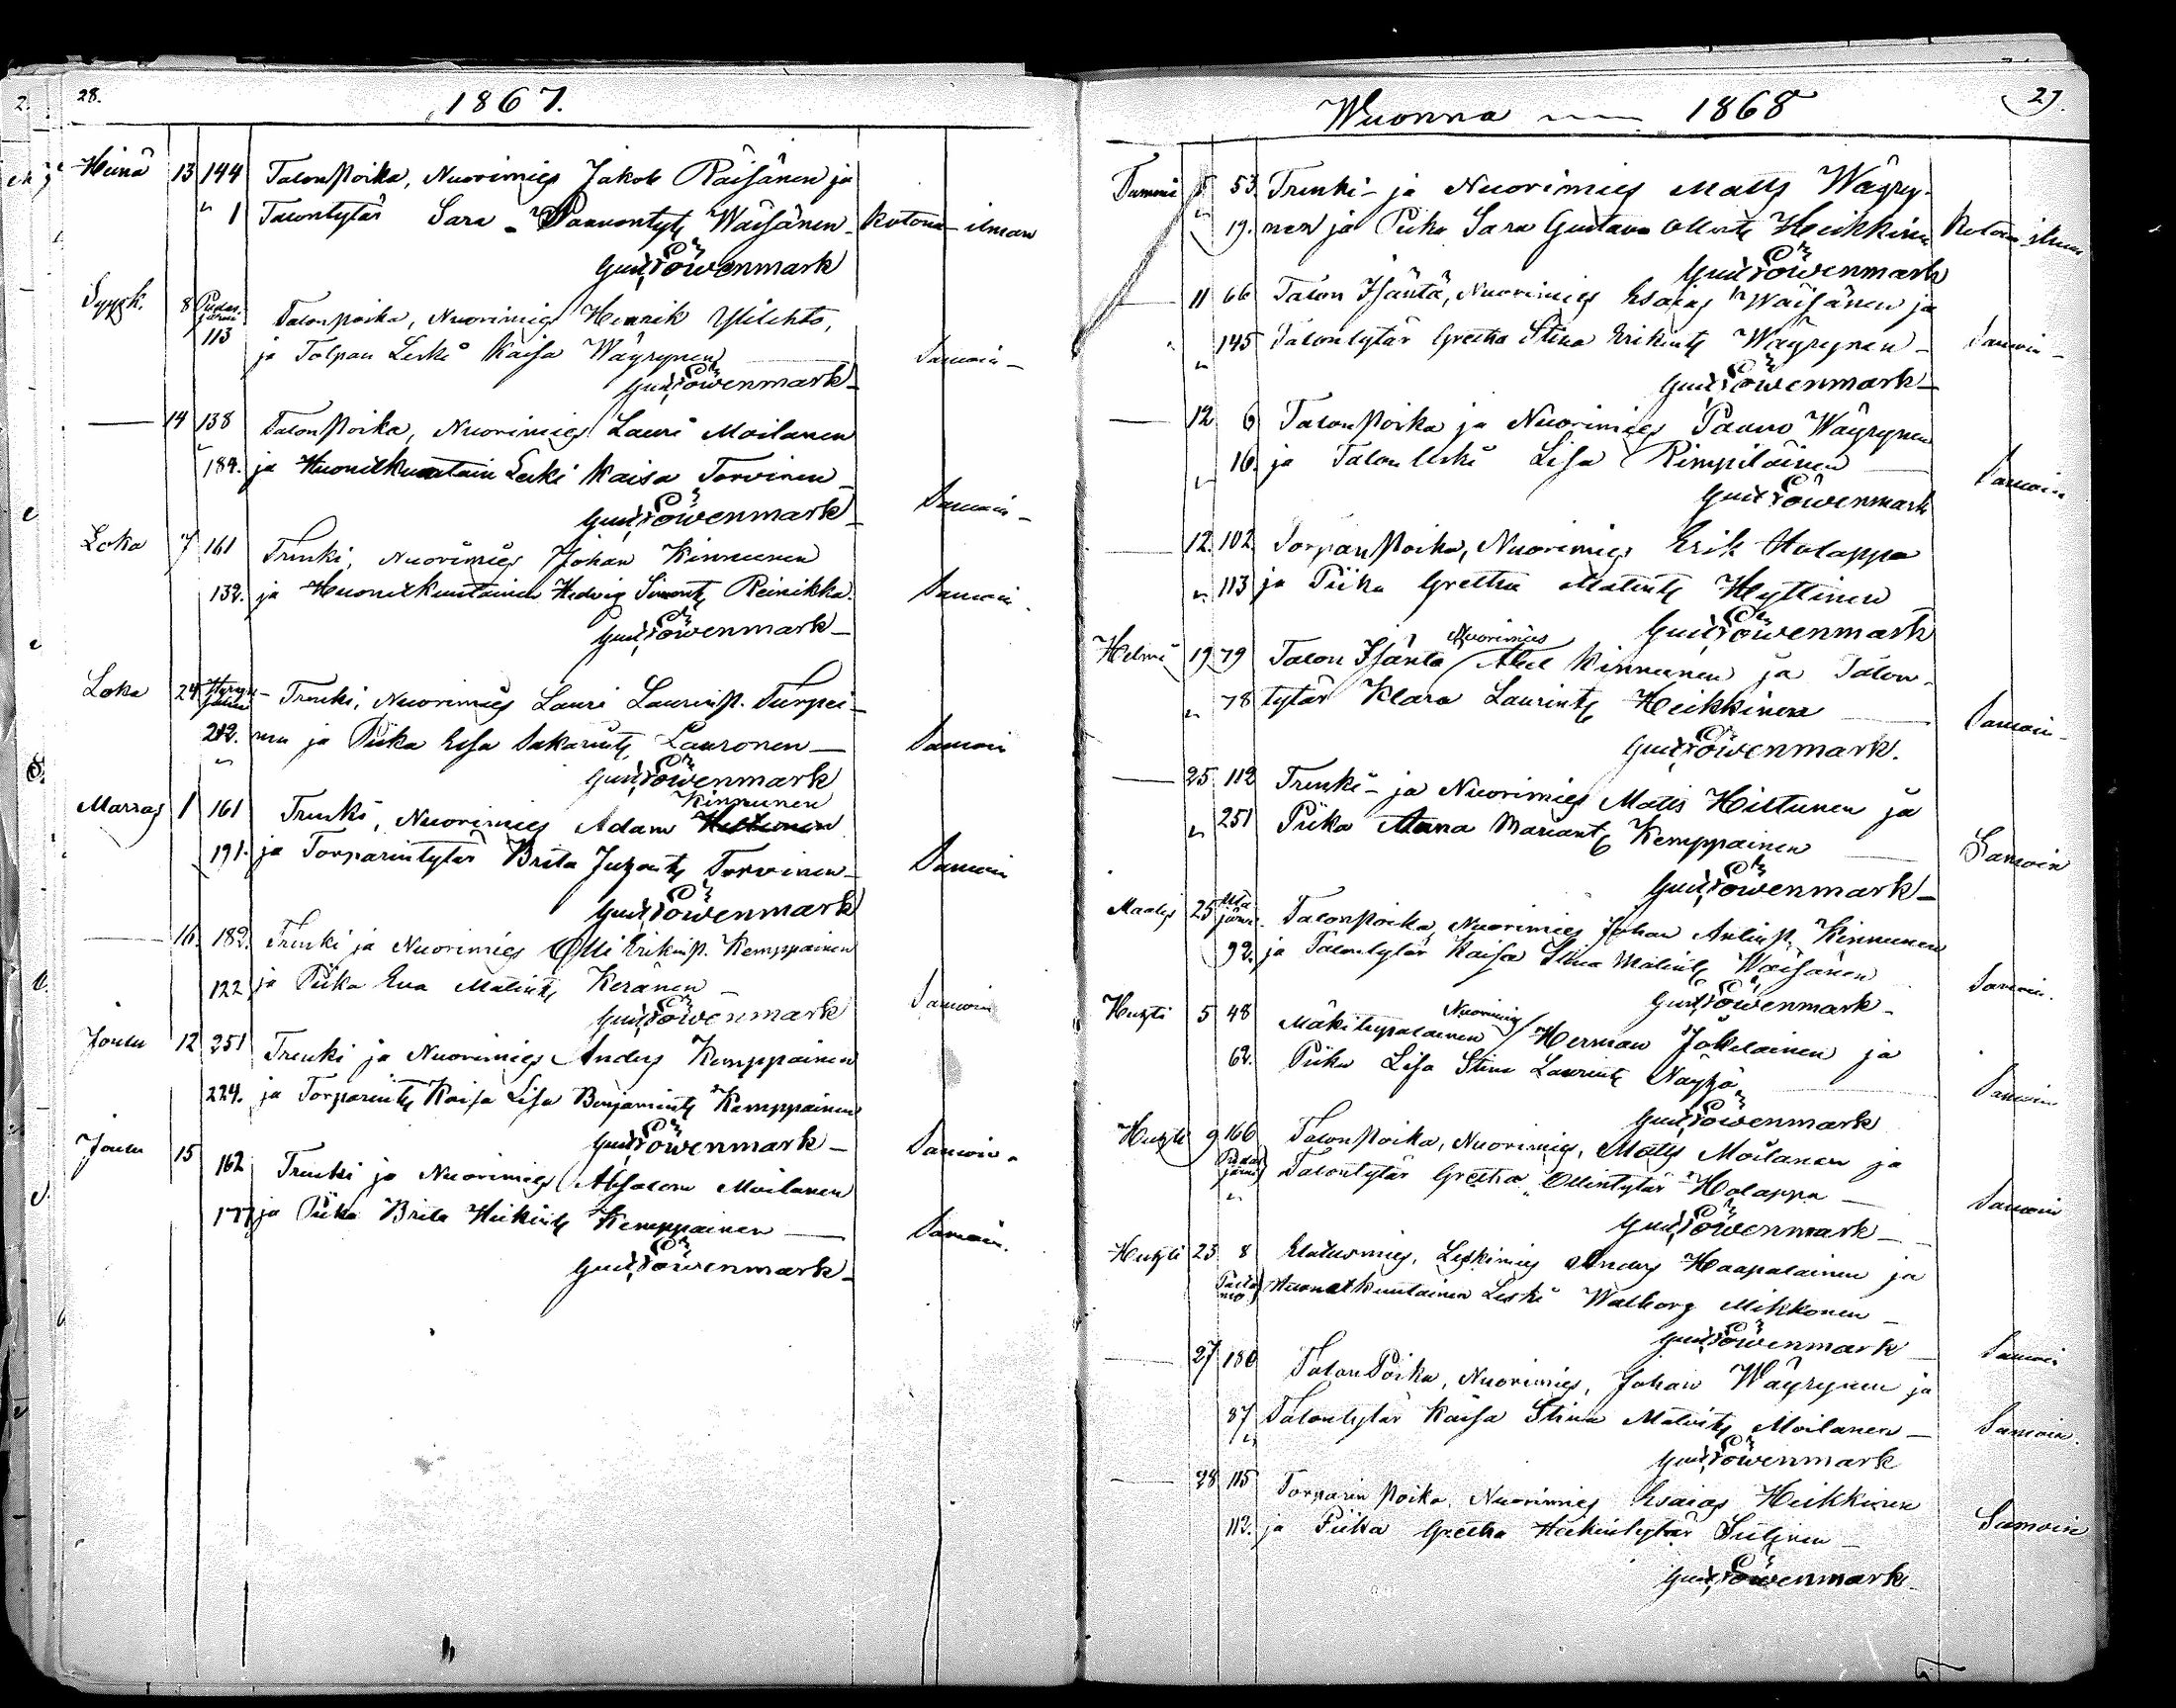 28.
1867.
Heinä 13 144 Talon Poika, Nuorimies Jakob Räisänen ja
" 1 Talontytär Sara Paavontyt Wäisänen - Kotona - ilman
Gust Löwenmark
Syysk. 8 Pudasjärvi Talonpoika, Nuorimies Henrik Ylilehto,
113 ja Talpan Leski Kaisa Wäyrynen Samoin -
Gust Löwenmark
14 138 Talon Poika, Nuorimies Lauri Moilanen
184. ja Huonekuntain Leski Kaisa Torvinen - Samoin -
Gust Löwenmark
Loka 7 161 Trenki, Nuorimies Johan Kinnunen
132. ja Huonekuntainen Hedvig Simont. Reinikka. Samoin
Gust Löwenmark -
Loka 24 Trenki, Nuorimies Lauri Laurinp. Turpei-
212. nen ja Piika Eesa Sakarint. Lauronen - Samoin
Gust Löwenmark
Kinnunen
Marras 1 161 Trenki, Nuorimies Adam
191. ja Torparintytär Brita Juhont. Torvinen - Samoin
Gust Löwenmark
16. 182. Trenki ja Nuorimies Olli Erikinp. Kemppainen
122 ja Piika Eva Matint. Keränen - Samoin
Gust Löwenmark
Joulu 12 251 Trenki ja Nuorimies Anders Kemppainen
224. ja Torparint. Kaisa Lisa Benjamint. Kemppainen
Gust Löwenmark - Samoin
Joulu 15 162 Trenki ja Nuorimies Absalom Moilanen
177 ja Piika Brita Heikint. Kemppainen Samoin.
Gust Löwenmark -
Wuonna 1868 29.
Tammi 5 53. Trenki- ja Nuorimies Matts Wäyry-
" 19. nen ja Piika Sara Gustava Ollint. Heikkinen Kotona ilman
Gust Löwenmark
11 66 Talon Isäntä, Nuorimies Esaias Wäisänen ja
" 145 Talontytär Greetha Stina Erikint. Wäyrynen - Samoin -
Gust Löwenmark -
12 6 Talon Poika ja Nuorimies Paavo Wäyrynen
" 16. ja Talon leski Lisa Rimpiläinen Samoin
Gust Löwenmark
12. 102. Torpan Poika, Nuorimies Erik Holappa
" 113 ja Piika Greetha Matint. Hyttinen
Gust Löwenmark
Helmi 19 79 Talon Isäntä Nuorimies Abel Kinnunen ja Talon-
" 78 tytär Klara Laurint. Heikkinen Samoin -
Gust Löwenmark.
25 112 Trenki- ja Nuorimies Matts Hiltunen ja
" 251 Piika Anna Mariant. Kemppainen Samoin
Gust Löwenmark -
Maalis 25 Talonpoika, Nuorimies Johan Antinp. Kinnunen
92. ja Talontytär Kaisa Stina Matint. Wäisänen Samoin.
Gust Löwenmark -
Huhti 5 48 Mäkitupalainen Nuorimies Herman Jokelainen ja
62. Piika Lisa Stina Laurint. Näppä Samoin
Gust Löwenmark
Huhti 9 166 Talon Poika, Nuorimies, Matts Moilanen ja
Pudasjärvi Talontytär Greetha Ollintytär Holappa - Samoin
Gust Löwenmark -
Huhti 23 8 Elatusmies, Leskimies Anders Haapalainen ja
Paltamo Huonekuntainen Leski Walborg Mikkonen -
Gust Löwenmark Samoin
27 180 Talon Poika, Nuorimies, Johan Wäyrynen ja
87 Talontytär Kaisa Stina Matint. Moilanen - Samoin.
Gust Löwenmark
28 115 Torparin Poika, Nuorimies Esaias Heikkinen
112. ja Piika Greetha Heikintytär - Samoin
Gust Löwenmark -